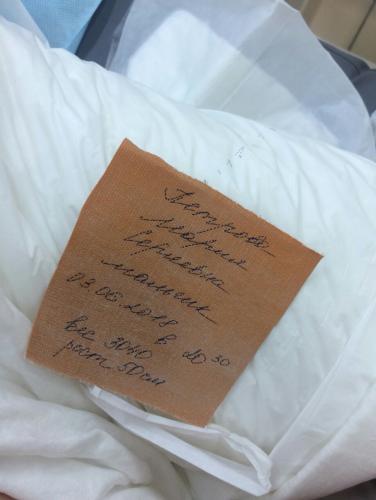 Петрова
Мария
Сергеевна
мальчик
03.06.2018
в 20 30
вес 3040
рост 50см